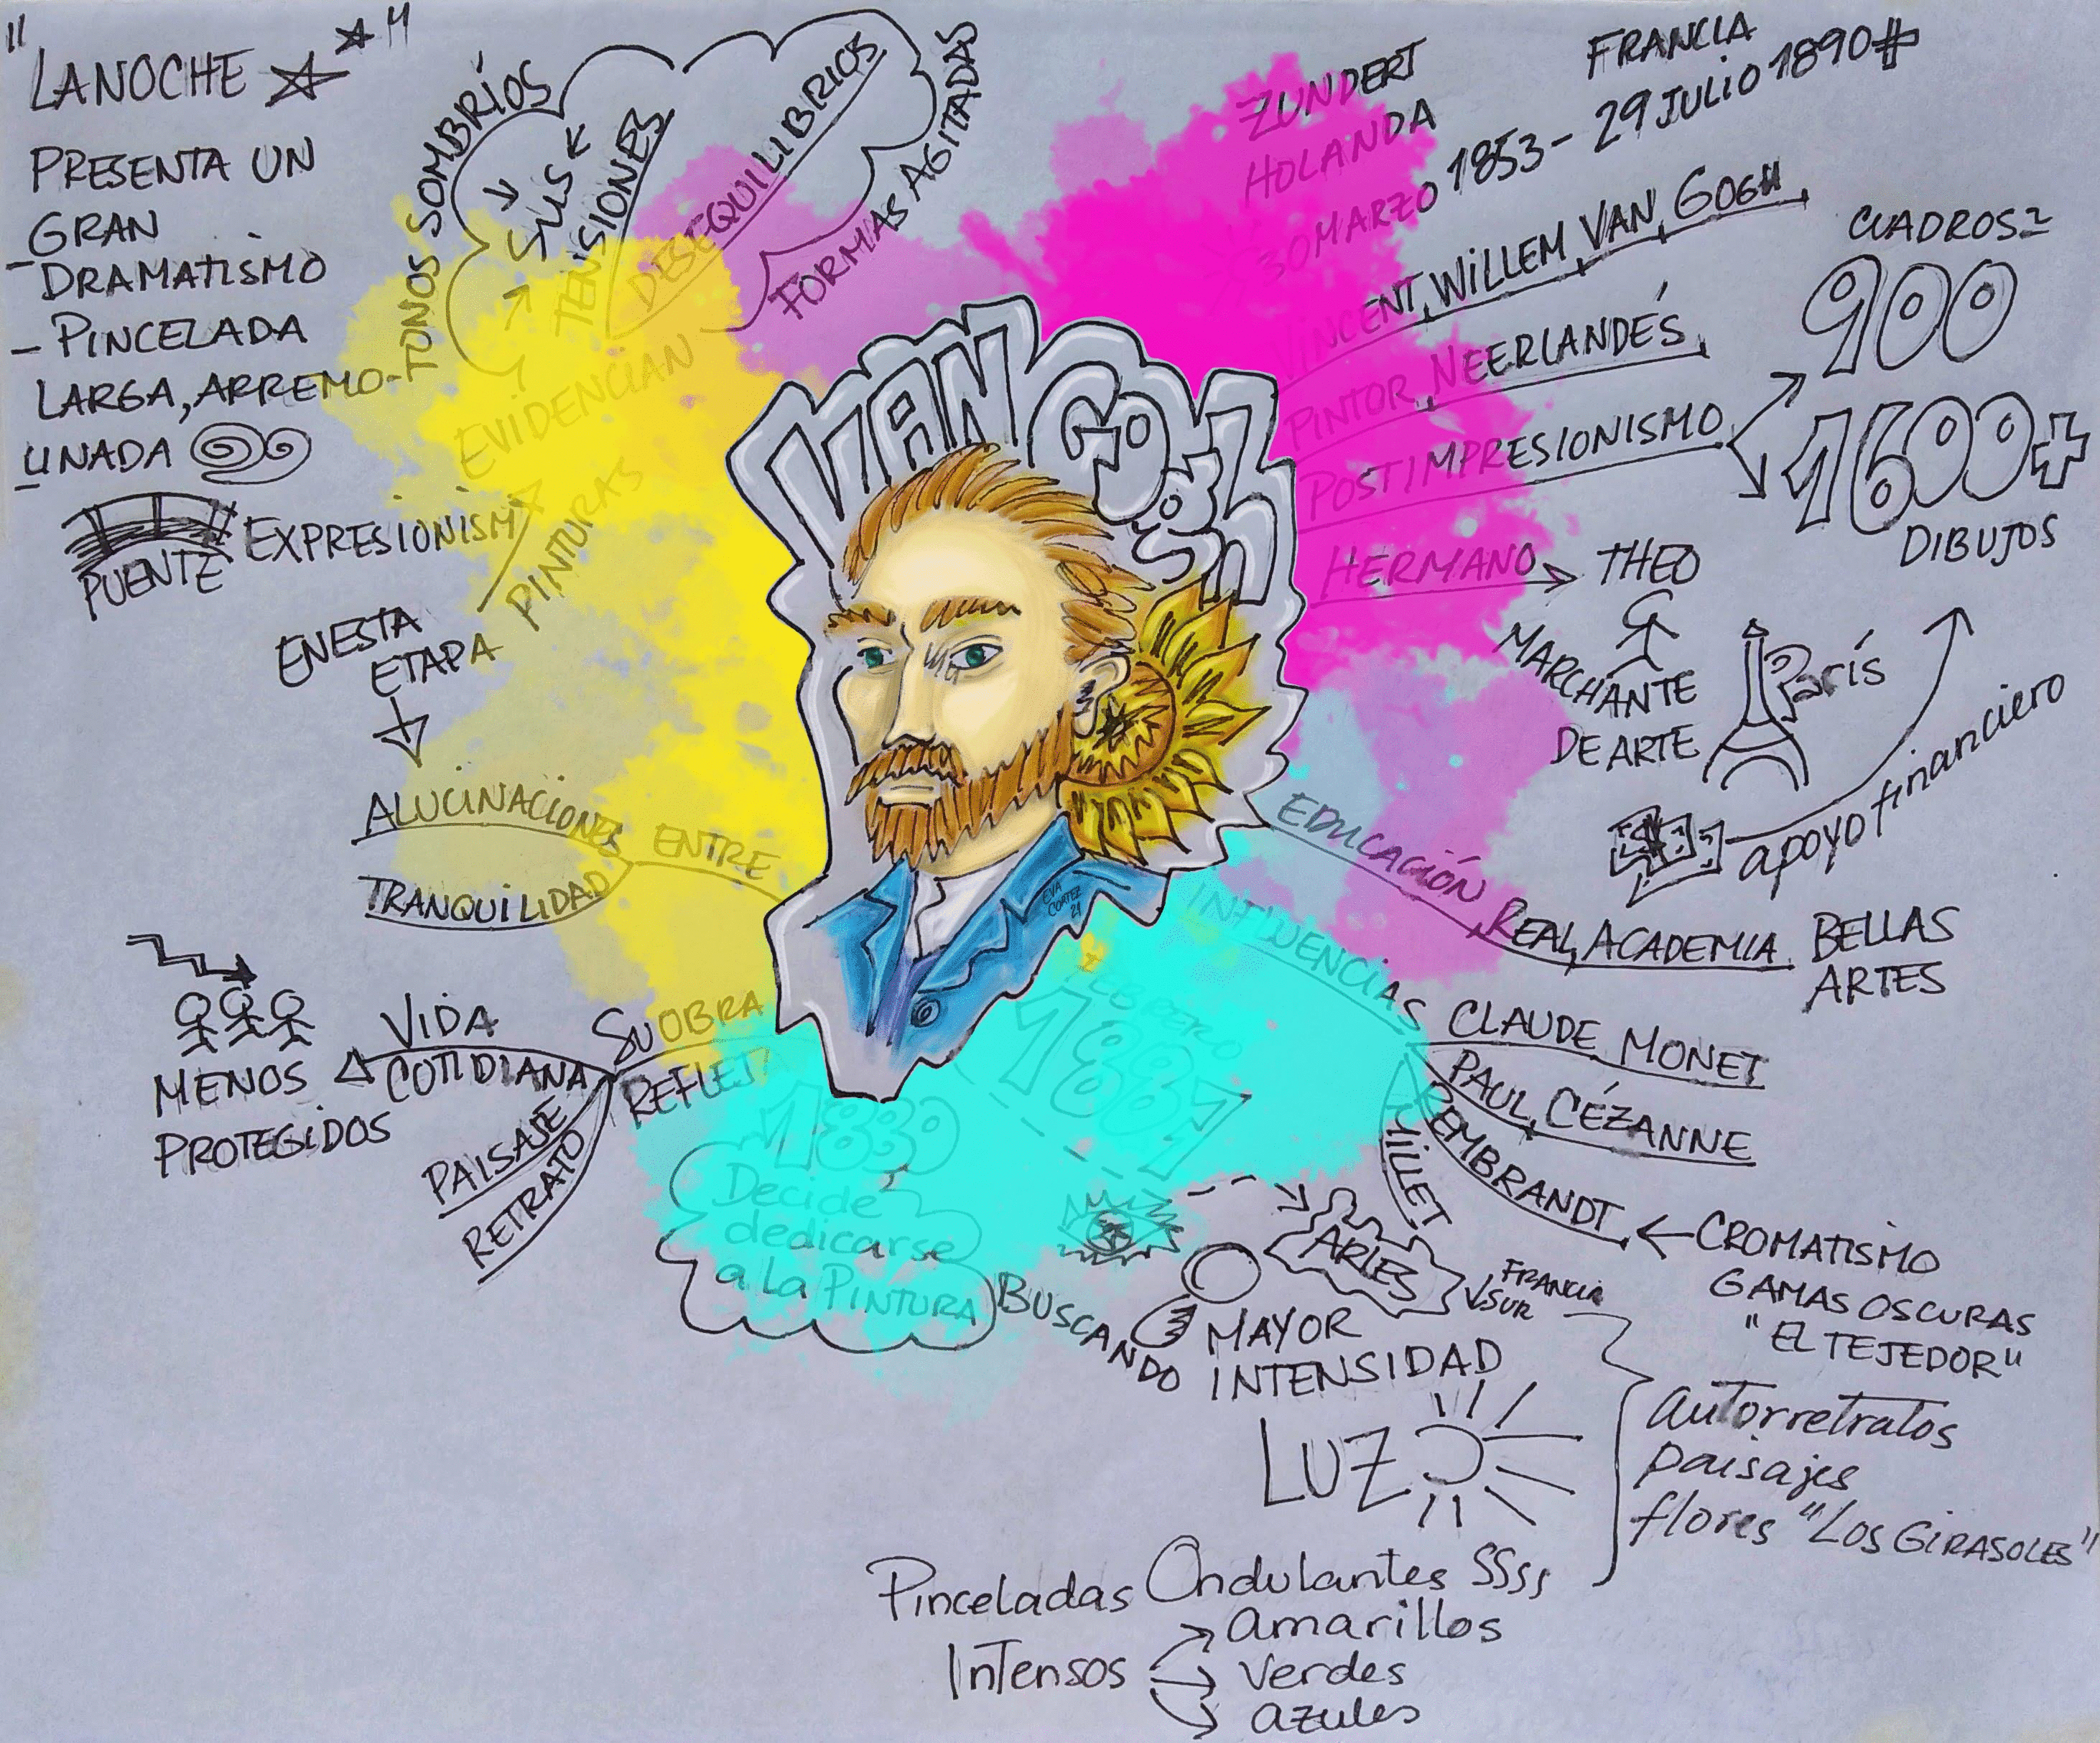 "LA NOCHE
PRESENTA UN
- GRAN
DRAMATISMO
- PINCELADA
LARGA, ARREMO-
UNADA
PUENTE
EXPRESIONISM
TONOS SOMBRÍOS
SUS
TENSIONES
DESEQUILIBRIOS
FORMAS AGITADAS
EVIDENCIAN
PINTURAS
EN ESTA
ETAPA
ALUCINACIONES
TRANQUILIDAD
ENTRE
SU OBRA
REFLEJ
VIDA
COTIDIANA
MENOS
PROTEGIDOS
PAISAJE
RETRATO
VAN GOGH
EVA
CORTEZ
21
ZUNDERT
HOLANDA
FRANCIA
30 MARZO 1853 - 29 JULIO 1890
VINCENT, WILLEM, VAN, GOGH
PINTOR, NEERLANDÉS
POSTIMPRESIONISMO
CUADROS=
900
1600+
DIBUJOS
HERMANO
THEO
MARCHANTE
DE ARTE
París
apoyo financiero
EDUCACIÓN
REAL, ACADEMIA
BELLAS
ARTES
INFLUENCIAS
CLAUDE MONET
PAUL, CÉZANNE
REMBRANDT
MILLET
CROMATISMO
GAMAS OSCURAS
"EL TEJEDOR"
1880
Decide
dedicarse
a la PINTURA
FEBRERO
1887
ARLES
FRANCIA
SUR
BUSCANDO
MAYOR
INTENSIDAD
LUZ
autorretratos
paisajes
flores "LOS GIRASOLES"
Pinceladas Ondulantes SSSS
Intensos
amarillos
verdes
azules